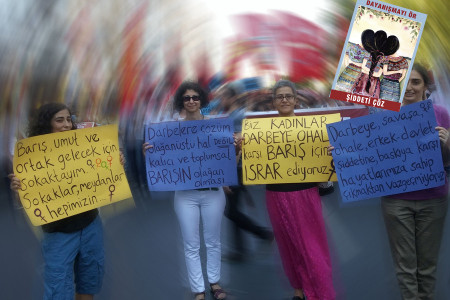 DAYANIŞMAYI ÖR
ŞİDDETİ ÇÖZ
Barış, umut ve
ortak gelecek için
Sokaktayım
Sokaklar, meydanlar
hepimizin
Darbelere çözüm
olağanüstü hal değil
kalıcı ve toplumsal
BARIŞIN olağan
olması
BİZ KADINLAR
DARBEYE OHALE
karşı BARIŞ için
ISRAR ediyoruz
Darbeye, savaşa,
ohale, erkek, devlet
şiddetine, baskıya karşı
hayatlarımıza sahip
çıkmaktan vazgeçmiyoruz